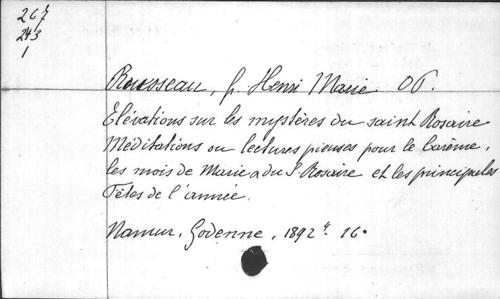 267
243
1
Rousseau, f. Henri Marie OP.
Elévations sur les mystères du saint Rosaire
Méditations ou lectures pieuses pour le Carême,
les mois de Marie & du S. Rosaire et les principales
Fêtes de l'année.
Namur, Godenne, 1892 16°